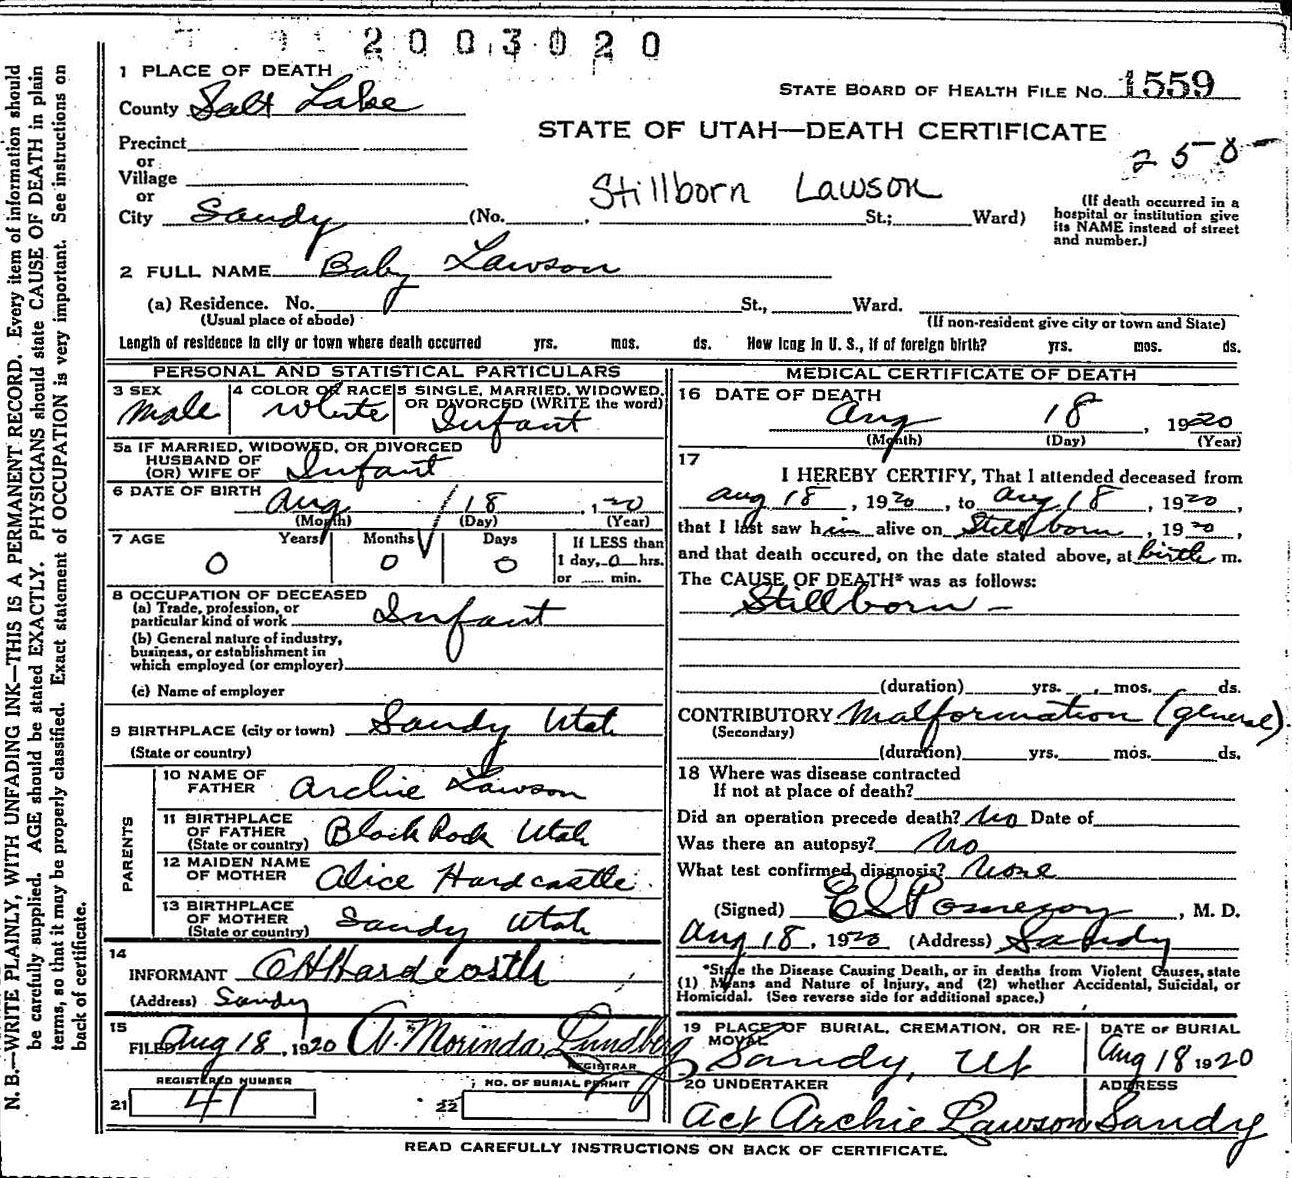 2003020
1 PLACE OF DEATH
County Salt Lake
STATE BOARD OF HEALTH FILE No. 1559
STATE OF UTAH—DEATH CERTIFICATE
Precinct
or
Village
or
2505
Stillborn Lawson
City Sandy (No. St.; Ward)
(If death occurred in a
hospital or institution give
its NAME instead of street
and number.)
2 FULL NAME Baby Lawson
(a) Residence. No. St., Ward.
(Usual place of abode)
(If non-resident give city or town and State)
Length of residence in city or town where death occurred yrs. mos. ds. How long in U. S., if of foreign birth? yrs. mos. ds.
PERSONAL AND STATISTICAL PARTICULARS
3 SEX
Male
4 COLOR OR RACE
White
5 SINGLE, MARRIED, WIDOWED,
OR DIVORCED (WRITE the word)
Infant
5a IF MARRIED, WIDOWED, OR DIVORCED
HUSBAND OF
(OR) WIFE OF Infant
6 DATE OF BIRTH Aug 18, 1920
(Month) (Day) (Year)
7 AGE Years Months Days If LESS than
0 0 0 1 day, 0 hrs.
or min.
8 OCCUPATION OF DECEASED
(a) Trade, profession, or
particular kind of work Infant
(b) General nature of industry,
business, or establishment in
which employed (or employer)
(c) Name of employer
9 BIRTHPLACE (city or town) Sandy Utah
(State or country)
PARENTS
10 NAME OF
FATHER Archie Lawson
11 BIRTHPLACE
OF FATHER
(State or country) Black Rock Utah
12 MAIDEN NAME
OF MOTHER Alice Hardcastle
13 BIRTHPLACE
OF MOTHER
(State or country) Sandy Utah
14
INFORMANT C H Hardcastle
(Address) Sandy
15
FILED Aug 18, 1920 A. Morinda Lundberg
REGISTRAR
REGISTERED NUMBER
21 41
NO. OF BURIAL PERMIT
22
MEDICAL CERTIFICATE OF DEATH
16 DATE OF DEATH
Aug 18, 1920
(Month) (Day) (Year)
17
I HEREBY CERTIFY, That I attended deceased from
Aug 18, 1920, to Aug 18, 1920,
that I last saw him alive on Stillborn, 1920,
and that death occured, on the date stated above, at birth m.
The CAUSE OF DEATH* was as follows:
Stillborn —
(duration) yrs. mos. ds.
CONTRIBUTORY Malformation (general).
(Secondary)
(duration) yrs. mos. ds.
18 Where was disease contracted
If not at place of death?
Did an operation precede death? No Date of
Was there an autopsy? No
What test confirmed diagnosis? None
(Signed) E S Pomeroy, M. D.
Aug 18, 1920 (Address) Sandy
*State the Disease Causing Death, or in deaths from Violent Causes, state
(1) Means and Nature of Injury, and (2) whether Accidental, Suicidal, or
Homicidal. (See reverse side for additional space.)
19 PLACE OF BURIAL, CREMATION, OR RE-
MOVAL
Sandy, Ut
DATE OF BURIAL
Aug 18 1920
20 UNDERTAKER
Act Archie Lawson
ADDRESS
Sandy
READ CAREFULLY INSTRUCTIONS ON BACK OF CERTIFICATE.
N. B.—WRITE PLAINLY, WITH UNFADING INK—THIS IS A PERMANENT RECORD. Every item of information should
be carefully supplied. AGE should be stated EXACTLY. PHYSICIANS should state CAUSE OF DEATH in plain
terms, so that it may be properly classified. Exact statement of OCCUPATION is very important. See instructions on
back of certificate.